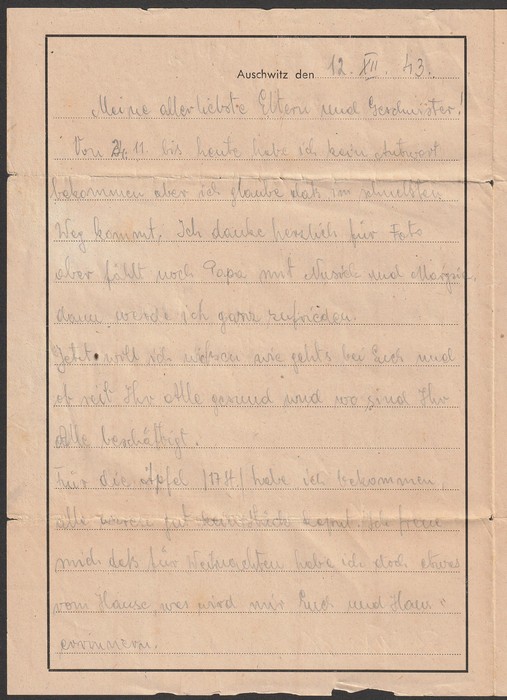 Auschwitz den 12. XII. 43.
Meine allerliebste Eltern und Geschwister!
Von 24.11 bis heute habe ich kein Antwort
bekommen aber ich glaube daß im schnelsten
Weg kommt. Ich danke herzlich für Foto
aber fählt noch Papa mit und
dann werde ich ganz zufrieden.
Jetzt will ich wißen wie gehts bei Euch und
ob seit Ihr Alle gesund und wo sind Ihr
Alle beschäftigt.
Für die Äpfel habe ich bekommen
alle waren gut kein Stück kaput. Ich freue
mich daß für Weihnachten habe ich doch etwas
vom Hause, was wird mir Euch und Haus
erinnern.